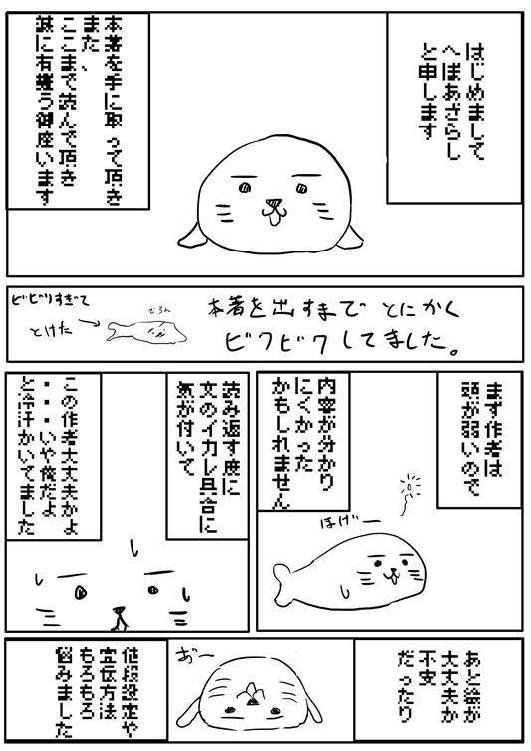 はじめまして
へぼあざらし
と申します
本著を手に取って頂き
また、
ここまで読んで頂き
誠に有難う御座います
本著を出すまで とにかく
ビクビクしてました。
ビビりすぎて
とけた
でろん
まず作者は
頭が弱いので
内容が分かり
にくかった
かもしれません
ほげー
読み返す度に
文のイカレ具合に
気が付いて
この作者大丈夫かよ
・・・いや俺だよ
と冷汗かいてました
あと絵が
大丈夫か
不安
だったり
お゛ー
値段設定や
宣伝方法
もろもろ
悩みました